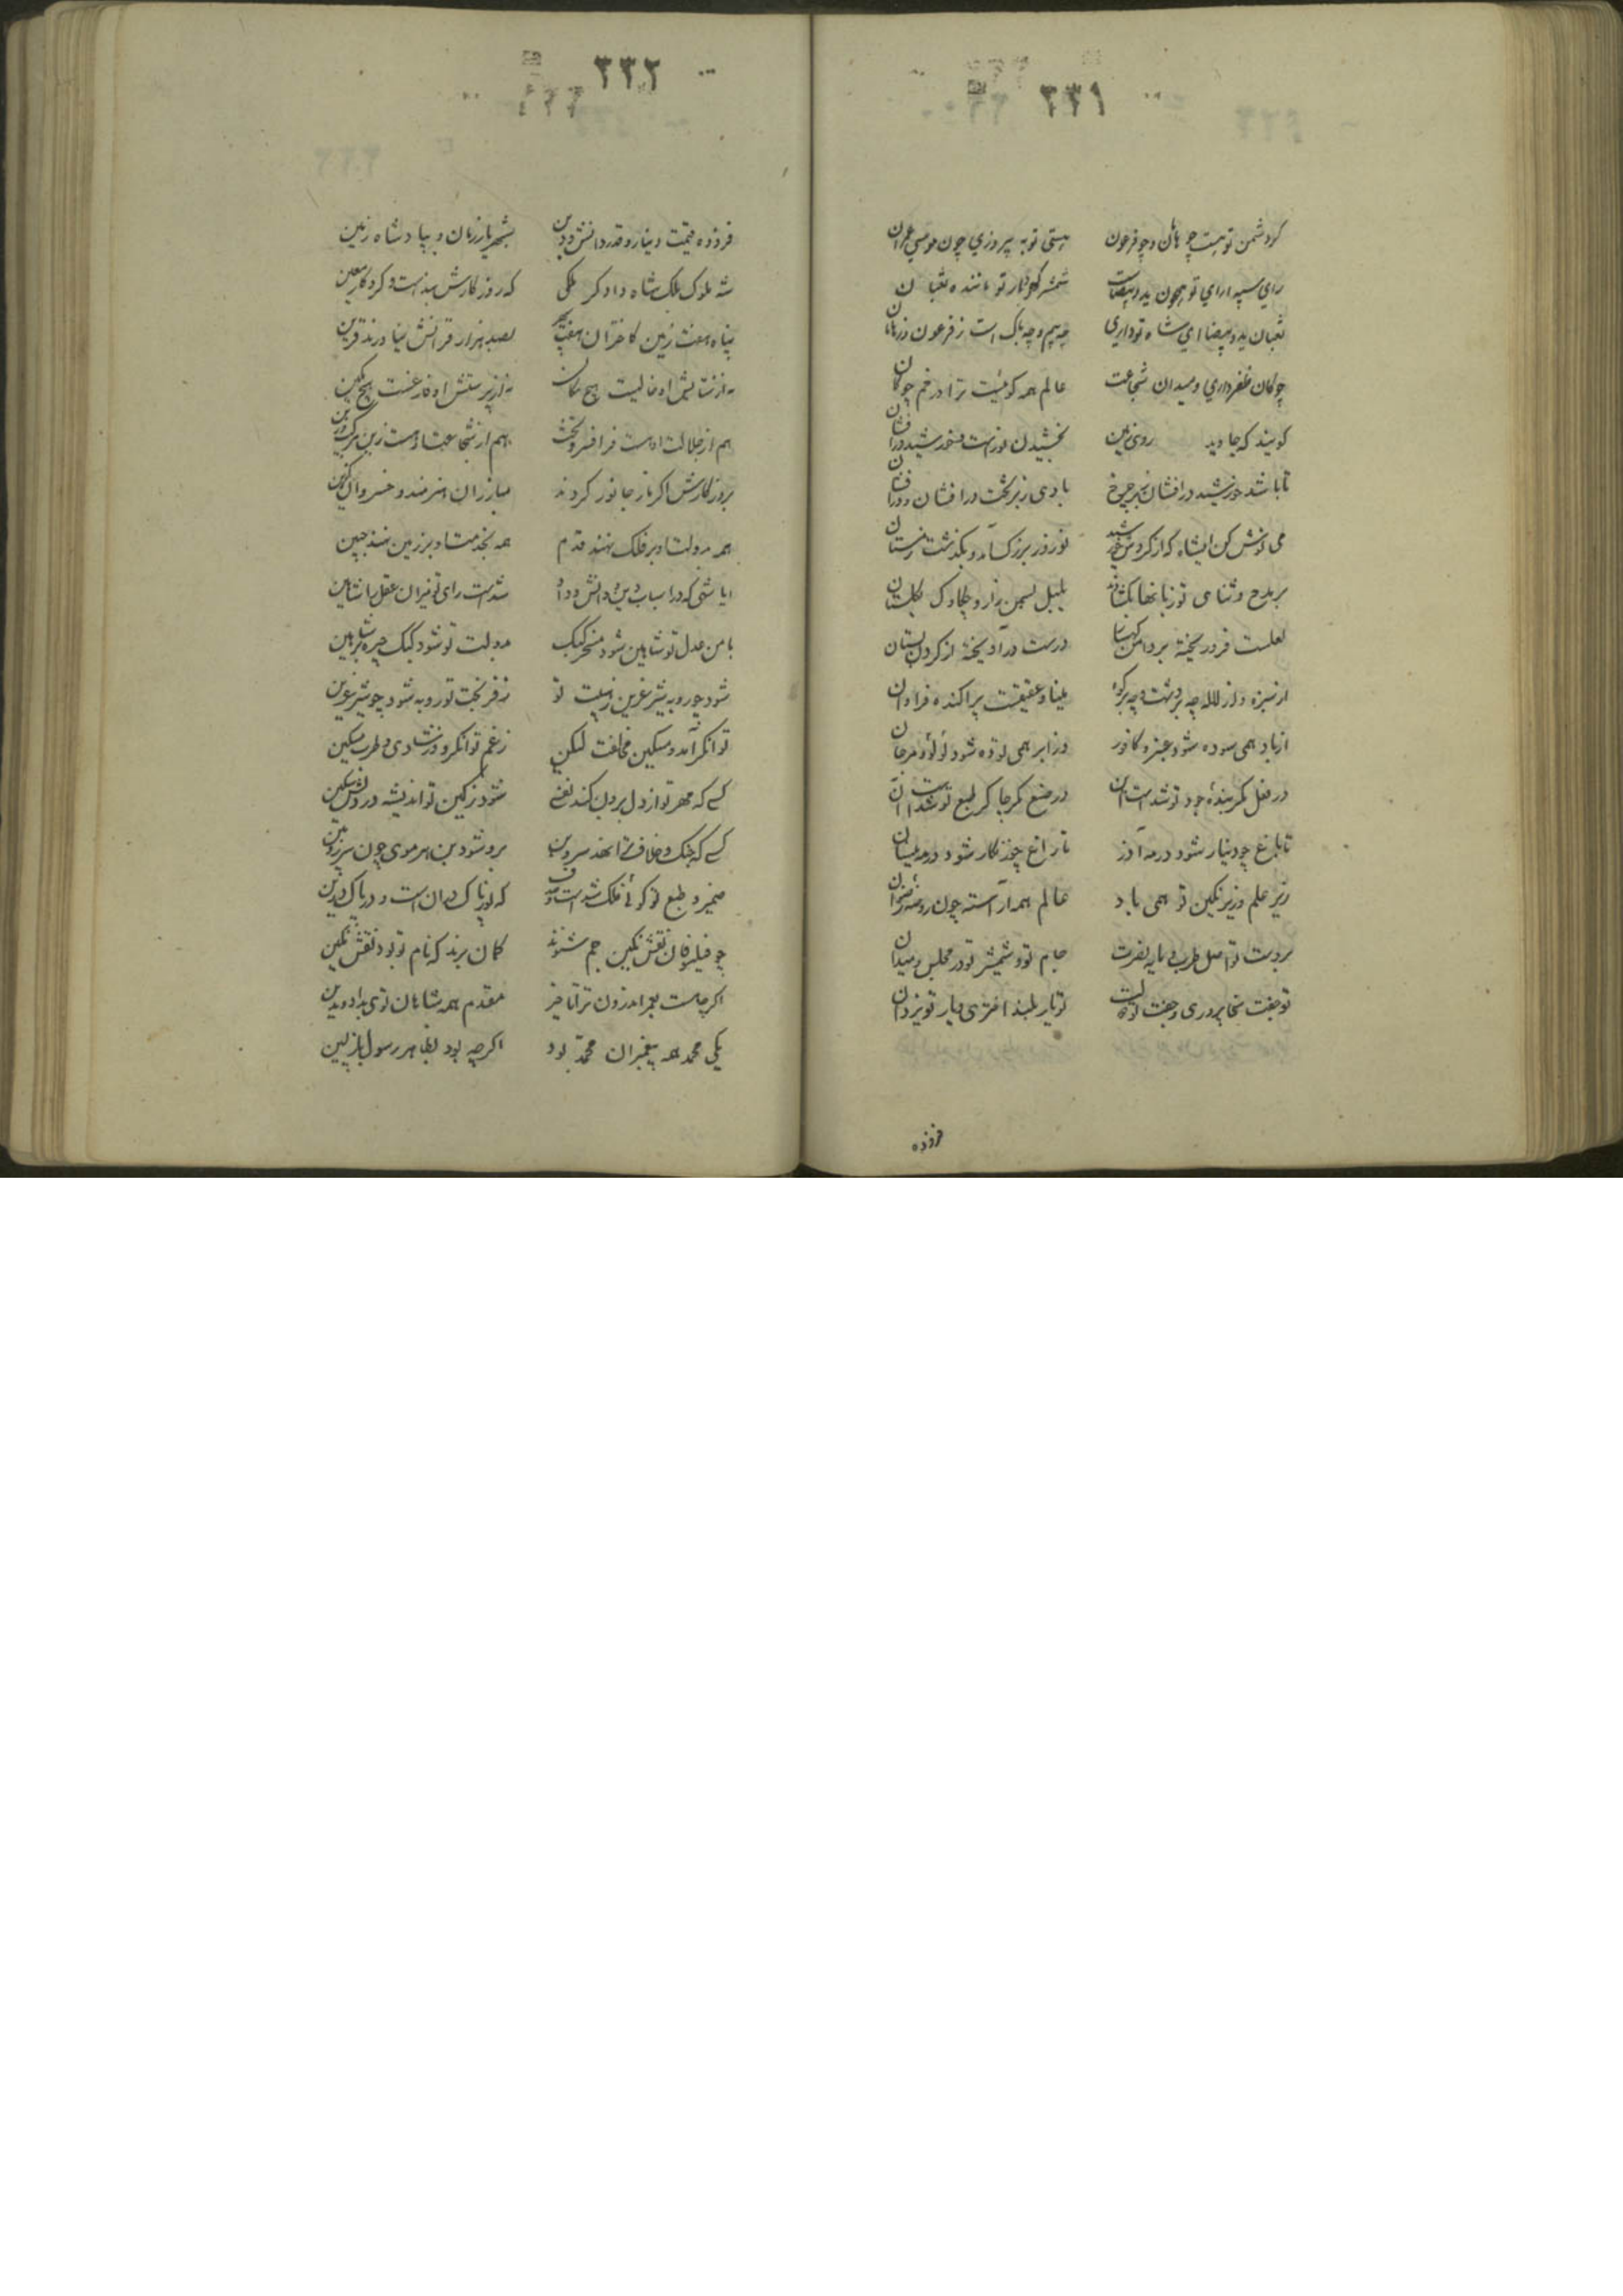 ۳۳۱
کر دشمن تو هست چو هامان و چو فرعون هستی تو به پیروزی چون موسی عمران
رای سپه ارای تو همچون ید و بیضاست شمشیر کهردار تو ماننده ثعبان
ثعبان ید و بیضا ای شاه تو داری چه بیم و چه باک است ز فرعون و ز هامان
چوکان ظفر داری و میدان شجاعت عالم همه کوئیست ترا در خم چوکان
کویند که جاوید روی زمین بخشیدن نور است ز خورشید درافشان
تا باشد خورشید درافشان بر چرخ بادی ز بر تخت درافشان و درافشان
می نوش کن ایشاه که از کردش خورشید نوروز بزرک آمد و بکذشت زمستان
بر مدح و ثنای تو زبانها بکشادند بلبل بسمن زار و چکاوک بکلستان
لعلست فرو ریخته بر دامن کهسار در است درآویخته از کردن بستان
از سبزه و از لاله چه بر دشت و چه بر کوه مینا و عقیقست پراکنده فراوان
از باد همی سوده شود عنبر و کافور وز ابر همی توده شود لؤلؤ و مرجان
در فعل مکر بنده جود تو شد است این در صنع مکر چاکر طبع تو شد است آن
تا باغ چو دینار شود در مه آذر تا راغ چو زنکار شود در مه نیسان
زیر علم و زیر نکین تو همی باد عالم همه آراسته چون روضه رضوان
بر دست تو اصل طرب و مایه نصرت جام تو و شمشیر تو در مجلس و میدان
تو جفت سخا پروری و جفت تو دولت تو یار بلند اختری و یار تو یزدان
فزوده
۳۳۲
فزوده قیمت دینار و قدر دانش و دین بشهریار زمان و بپادشاه زمین
شه ملوک ملک شاه دادکر ملکی که روزکارش بنده است و کردکار معین
پناه هفت زمین کاختران هفت سپهر بصد هزار قرانش نیاورند قرین
نه از ستایش او خالیست هیچ مکان نه از پرستش او فارغست هیچ مکین
هم از جلالت او هست فر افسر و تخت هم از شجاعت او هست زین مرکب و زین
بروزکارش اکر باز جانور کردند مبارزان هنرمند و خسروان کزین
همه بدولت او بر فلک نهند قدم همه بخدمت او بر زمین نهند جبین
ایا شهی که در اسباب دین و دانش و داد شد است رای تو میزان عقل را شاهین
بامن عدل تو شاهین شود مسخر کبک بدولت تو شود کبک چیره بر شاهین
شود چو روبه شیر عرین ز هیبت تو ز فر بخت تو روبه شود چو شیر عرین
توانکر آمد و مسکین مخالفت لیکن ز غم توانکر و وز شادی و طرب مسکین
کسی که مهر تو از دل برون کند نفسی شود ز کین تو اندیشه در دلش سکین
کسی که جنک و خلاف ترا نهد سر و بن برو شود بن هر موی چون سر زوبین
ضمیر و طبع تو کوئی فلک شد است و صدف که نور پاک در آن است و در پاک درین
چو فیلسوفان نقش نکین جم شنوند کمان برند که نام تو بود نقش نکین
اکر چه هست بعمر اندرون ترا تاخیر مقدم همه شاهان توی بداد و بدین
یکی محمد همه پیغمبران محمد بود اکر چه بود بظاهر رسول باز پسین